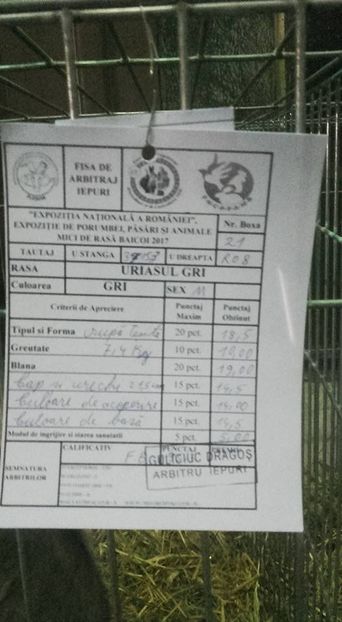 FISA DE
ARBITRAJ
IEPURI
"EXPOZIȚIA NAȚIONALĂ A ROMÂNIEI",
EXPOZIȚIE DE PORUMBEI, PĂSĂRI ȘI ANIMALE
MICI DE RASĂ BAICOI 2017
Nr. Boxa
21
TATUAJ U STANGA U DREAPTA RO8
RASA URIASUL GRI
Culoarea GRI SEX M
Criterii de Apreciere Punctaj Maxim Punctaj Obtinut
Tipul si Forma 20 pct. 18,5
Greutate 7,4 Kg 10 pct. 10,00
Blana 20 pct. 19,00
Cap si urechi 15 pct. 14,5
Culoare de acoperire 15 pct. 14,00
Culoare de bază 15 pct. 14,5
Modul de ingrijire si starea sanatatii 5 pct. 5,00
CALIFICATIV
SEMNATURA
ARBITRILOR
GULICIUC DRAGOȘ
ARBITRU IEPURI